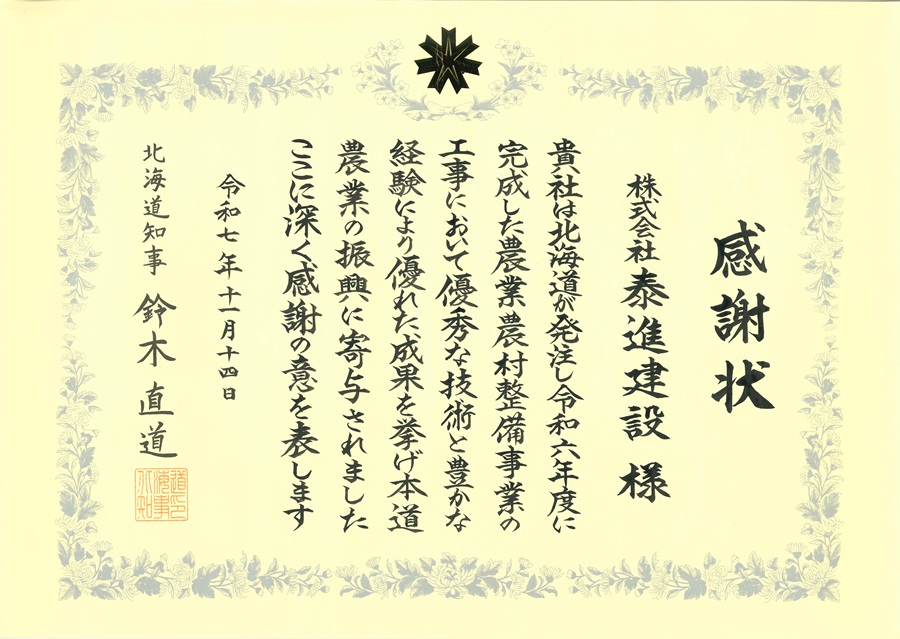 感謝状
株式会社 泰進建設 様
貴社は北海道が発注し令和六年度に
完成した農業農村整備事業の
工事において優秀な技術と豊かな
経験により優れた成果を挙げ本道
農業の振興に寄与されました
ここに深く感謝の意を表します
令和七年十一月十四日
北海道知事 鈴木直道
道印
海事
北知